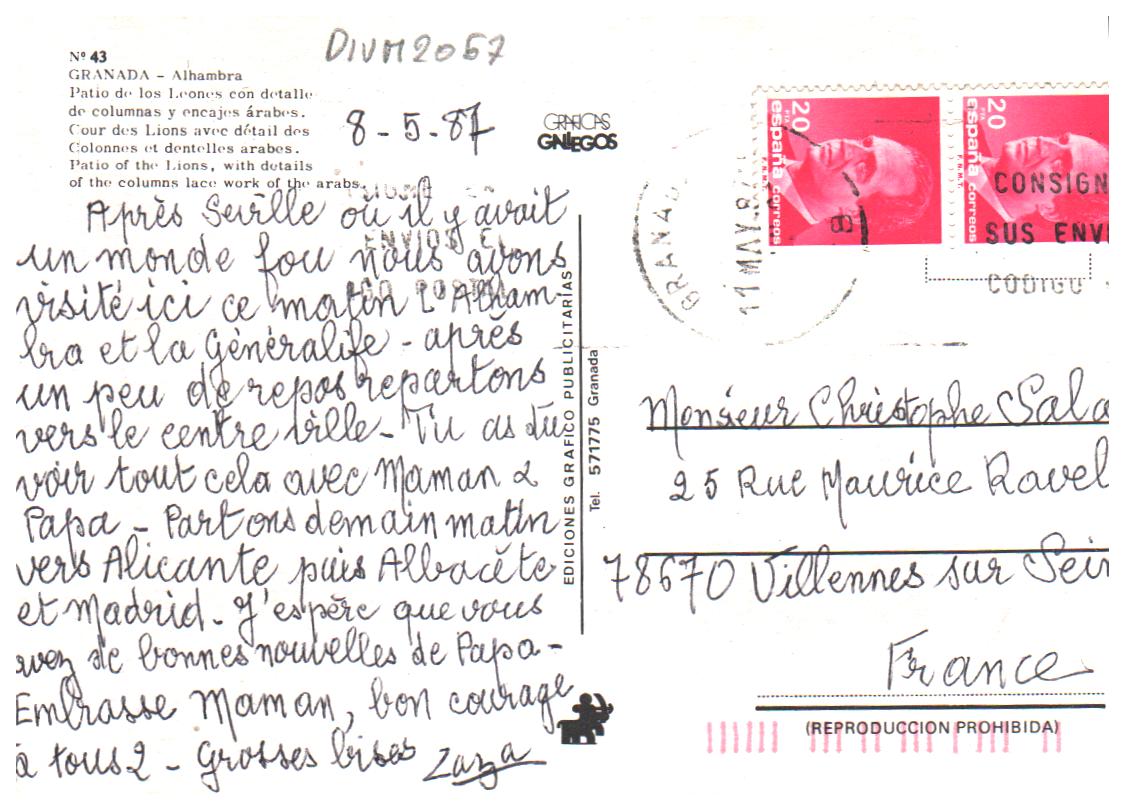 DIVM2057
Nº 43
GRANADA - Alhambra
Patio de los Leones con detalle
de columnas y encajes árabes.
Cour des Lions avec détail des
Colonnes et dentelles arabes.
Patio of the Lions, with details
of the columns lace work of the arabs.
8-5-87
GRAFICAS
GALLEGOS
Après Séville où il y avait
un monde fou nous avons
visité ici ce matin l'Alham-
bra et la Généralife - après
un peu de repos repartons
vers le centre ville - Tu as dû
voir tout cela avec Maman &
Papa - Partons demain matin
vers Alicante puis Albacète
et Madrid. J'espère que vous
avez de bonnes nouvelles de Papa -
Embrasse Maman, bon courage
à tous 2 - Grosses bises Zaza
EDICIONES GRAFICO PUBLICITARIAS
Tel. 571775 Granada
20 PTA
españa correos
F.N.M.T.
20 PTA
españa correos
F.N.M.T.
GRANAD
11 MAY 8
CONSIGN
SUS ENVI
CODIGO
Monsieur Christophe Sala
25 Rue Maurice Ravel
78670 Villennes sur Sein
France
(REPRODUCCION PROHIBIDA)